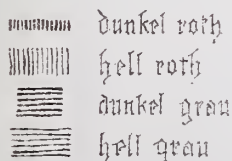 dunkel roth
hell roth
dunkel grau
hell grau